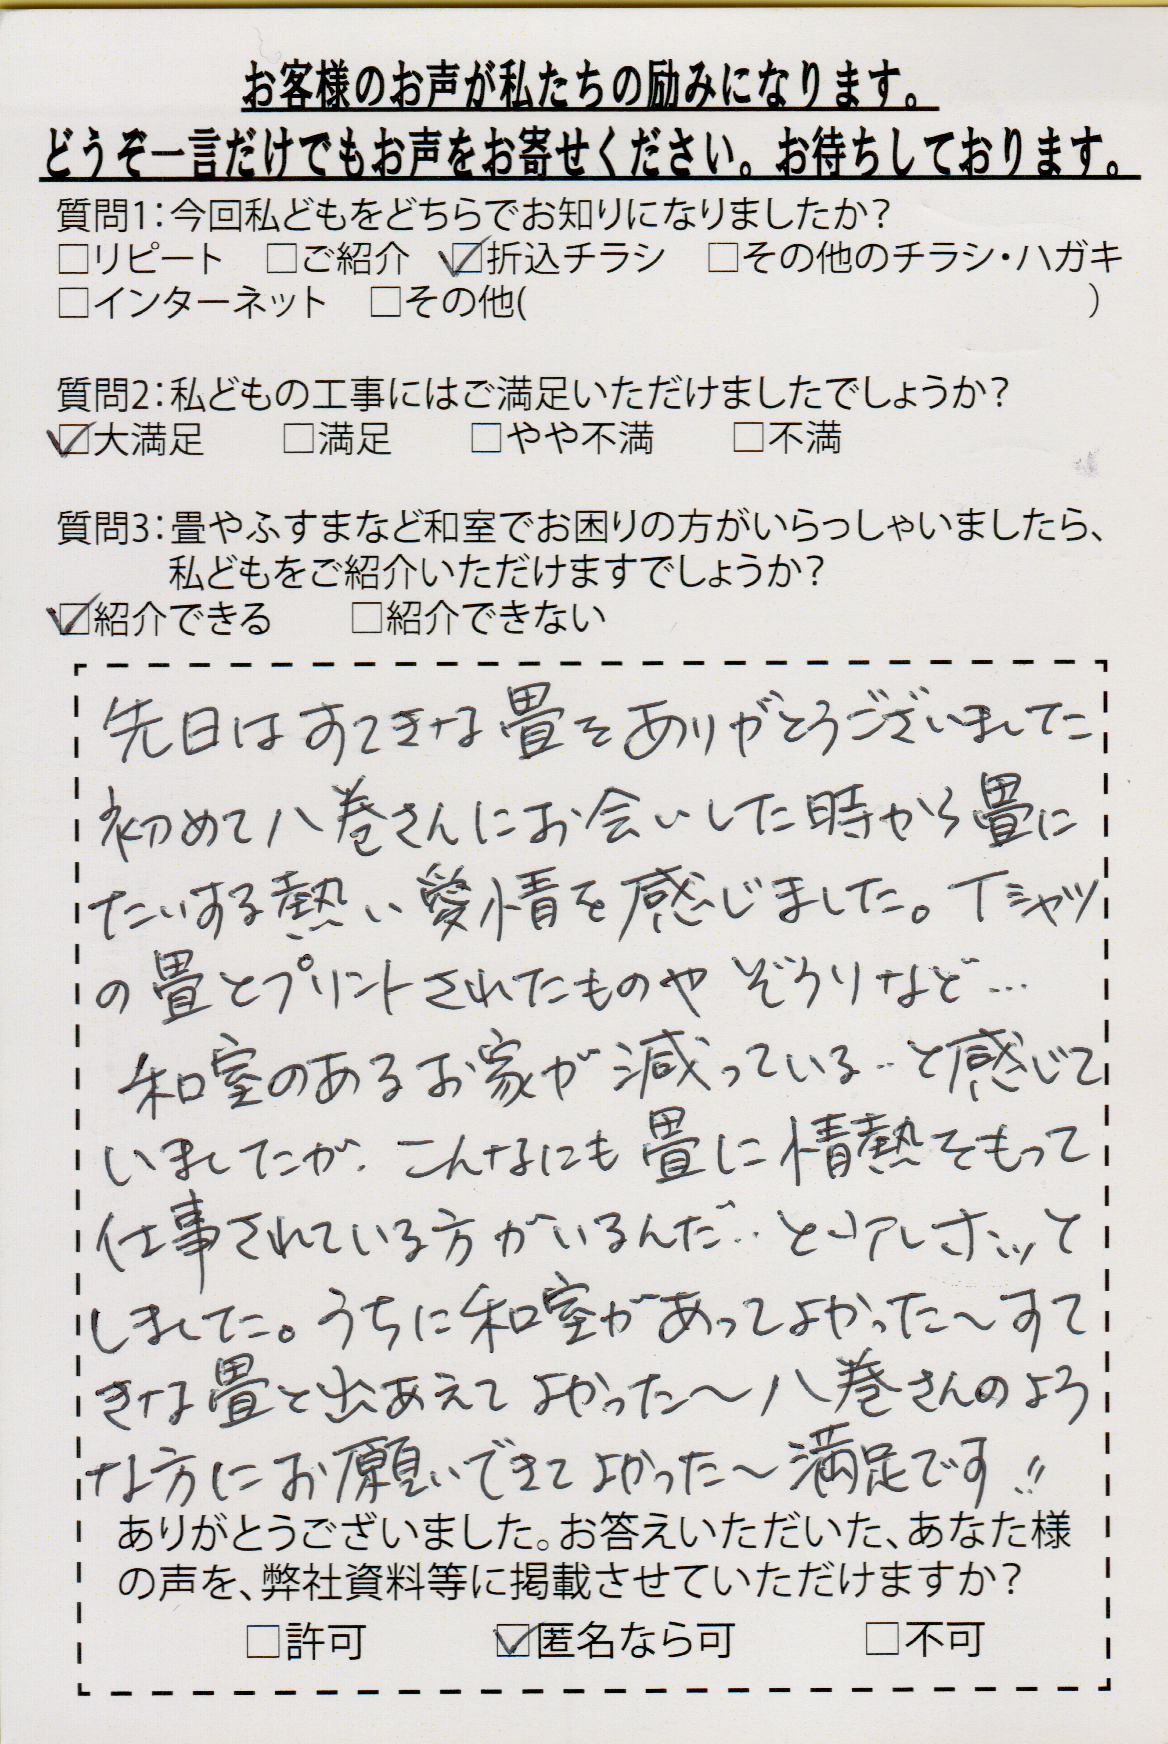 お客様のお声が私たちの励みになります。
どうぞ一言だけでもお声をお寄せください。お待ちしております。
質問1：今回私どもをどちらでお知りになりましたか？
□リピート □ご紹介 ☑折込チラシ □その他のチラシ・ハガキ
□インターネット □その他( )
質問2：私どもの工事にはご満足いただけましたでしょうか？
☑大満足 □満足 □やや不満 □不満
質問3：畳やふすまなど和室でお困りの方がいらっしゃいましたら、
私どもをご紹介いただけますでしょうか？
☑紹介できる □紹介できない
先日はすてきな畳をありがとうございました
初めて八巻さんにお会いした時から畳に
たいする熱い愛情を感じました。Tシャツ
の畳とプリントされたものやぞうりなど…
和室のあるお家が減っている‥と感じて
いましたが、こんなにも畳に情熱をもって
仕事されている方がいるんだ‥と少しホッと
しました。うちに和室があってよかった〜すて
きな畳と出あえてよかった〜八巻さんのよう
な方にお願いできてよかった〜満足です!!
ありがとうございました。お答えいただいた、あなた様
の声を、弊社資料等に掲載させていただけますか？
□許可 ☑匿名なら可 □不可